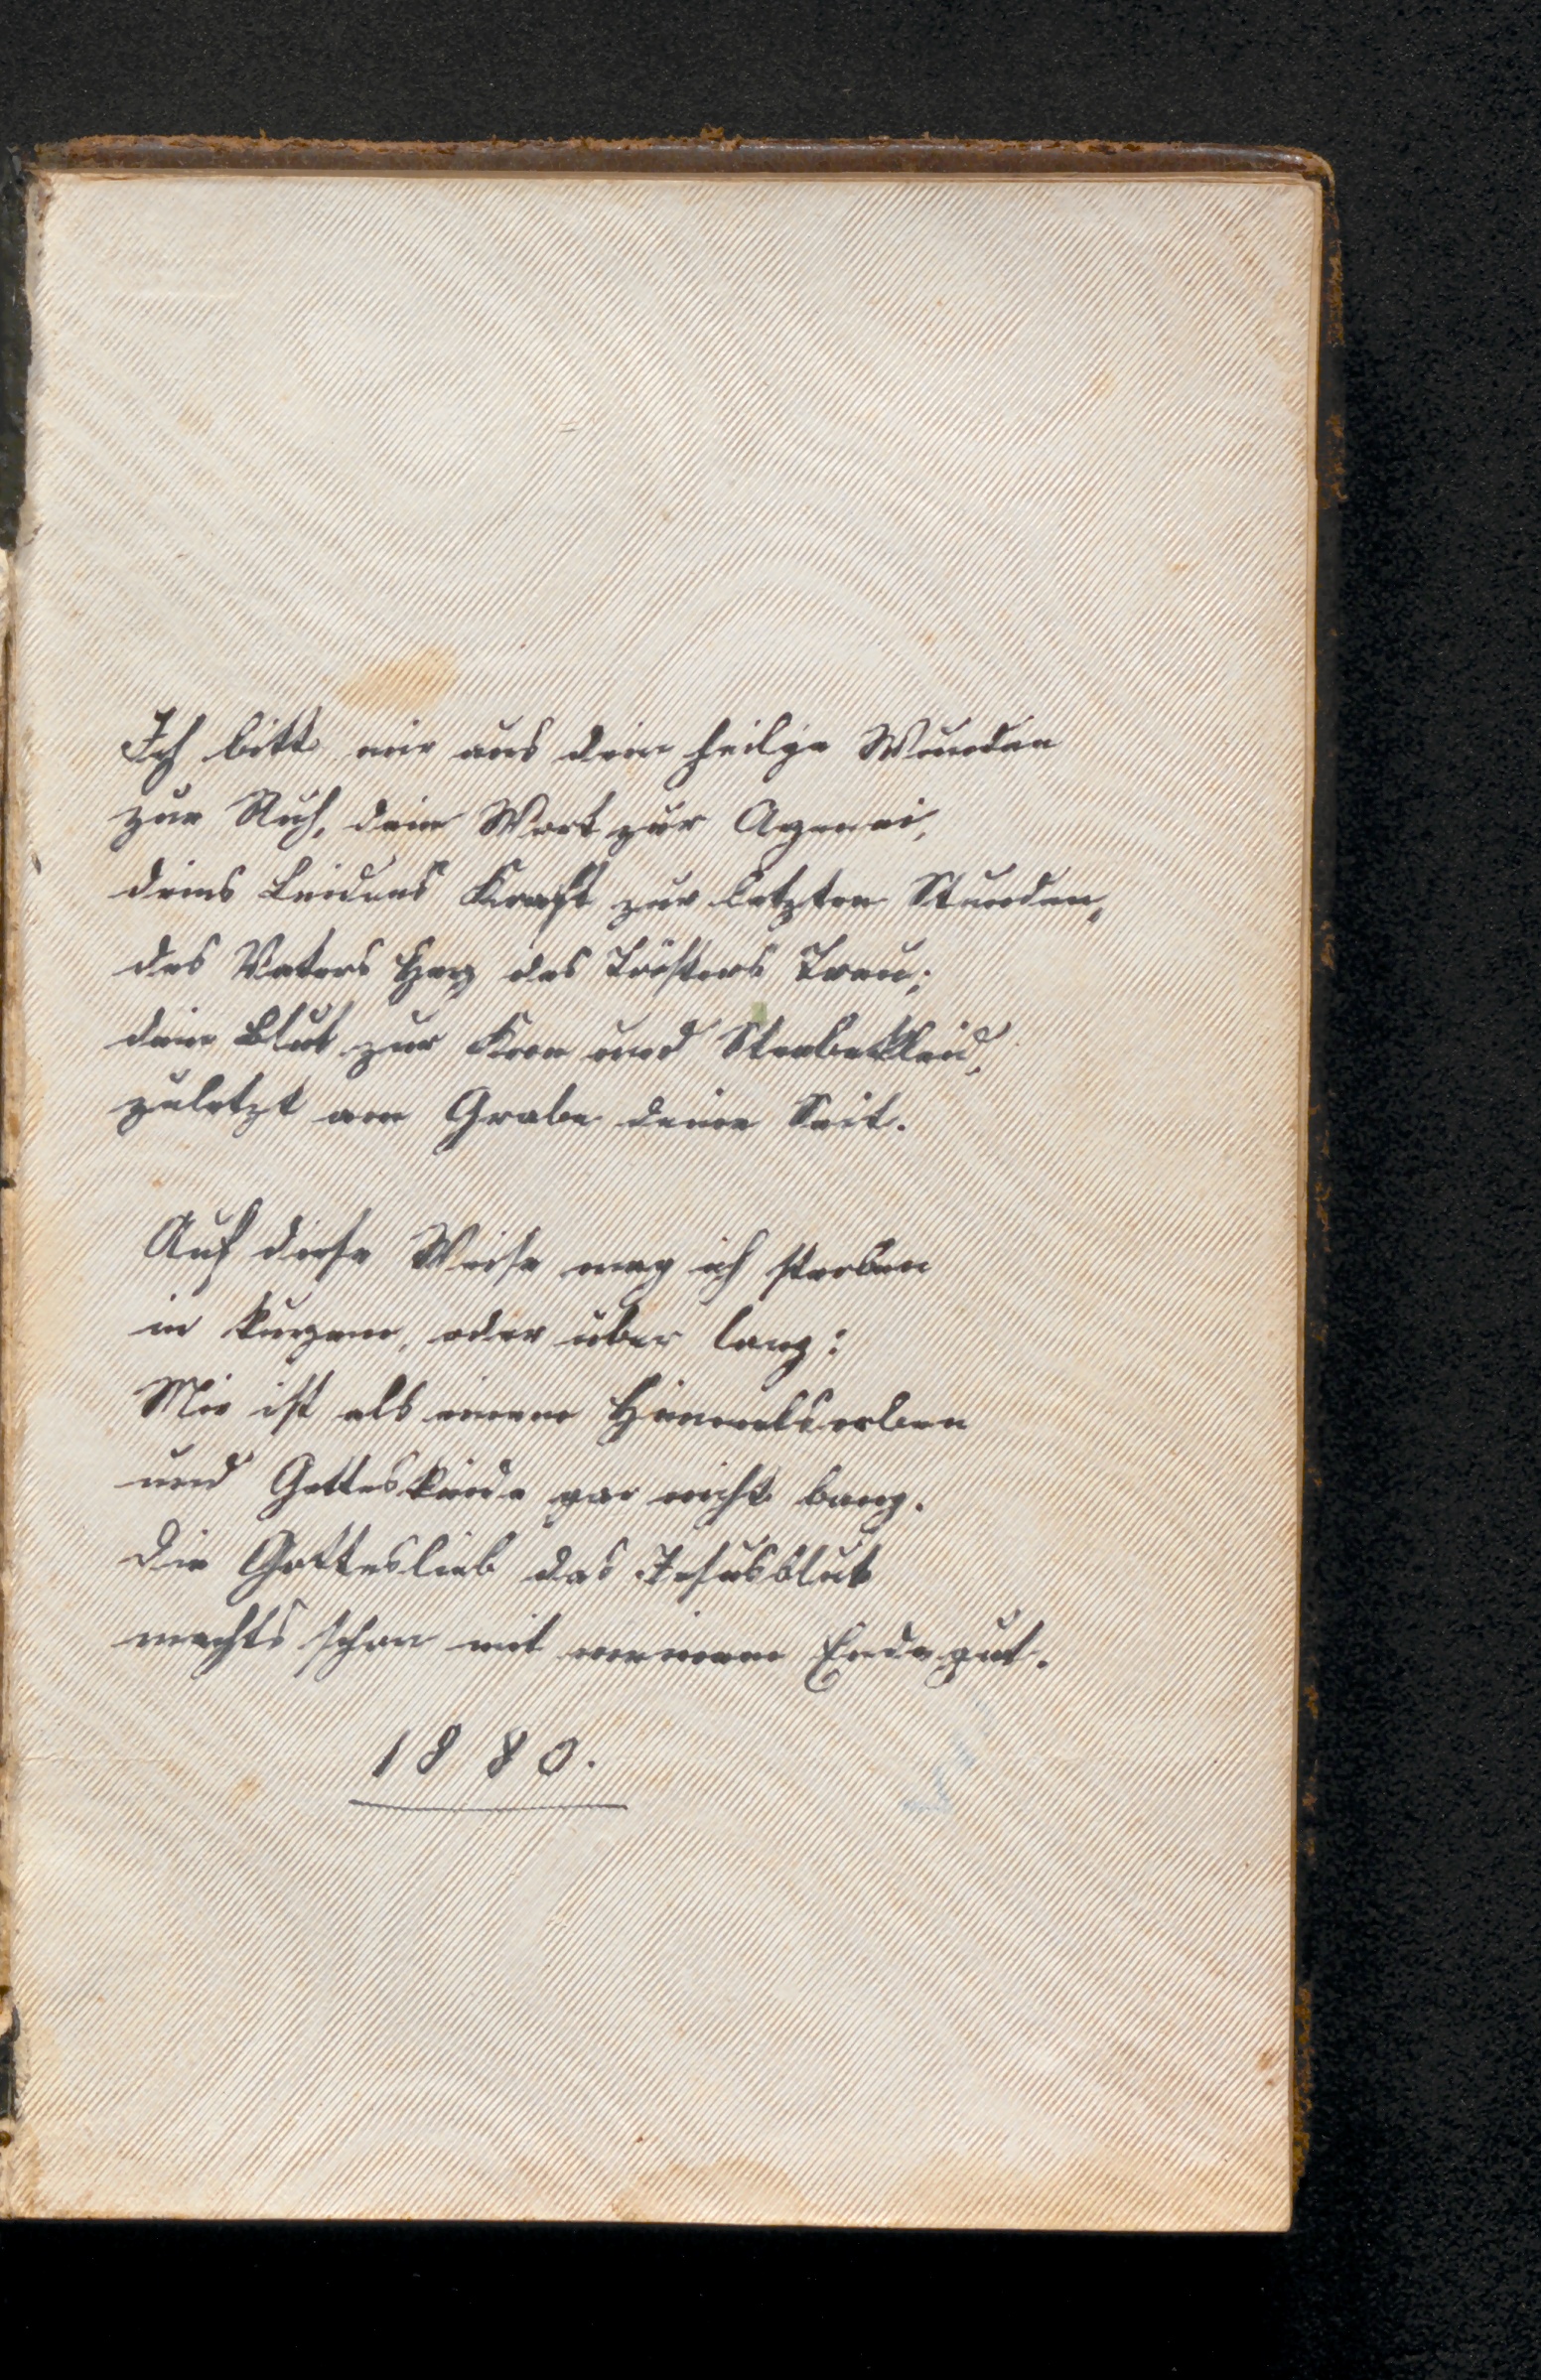 Ich bitt mir aus dein heilge Wunden
zur Ruh, dein Wort zur Arzenei,
deins Leidens Kraft zur letzten Stunden,
des Vaters Herz des Trösters Treu;
dein Blut zur Kron und Sterbekleid,
zuletzt am Grabe deine Seit.
Auf diese Weise mag ich sterben
in kurzem, oder über lang:
Mir ist als einem Himmelserben
und Gotteskinde gar nicht bang.
Die Gotteslieb das Jesusblut
machts schon mit meinem Ende gut.
1880.